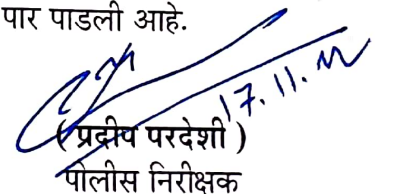 पार पाडली आहे.
17.11.
( प्रदीप परदेशी )
पोलीस निरीक्षक